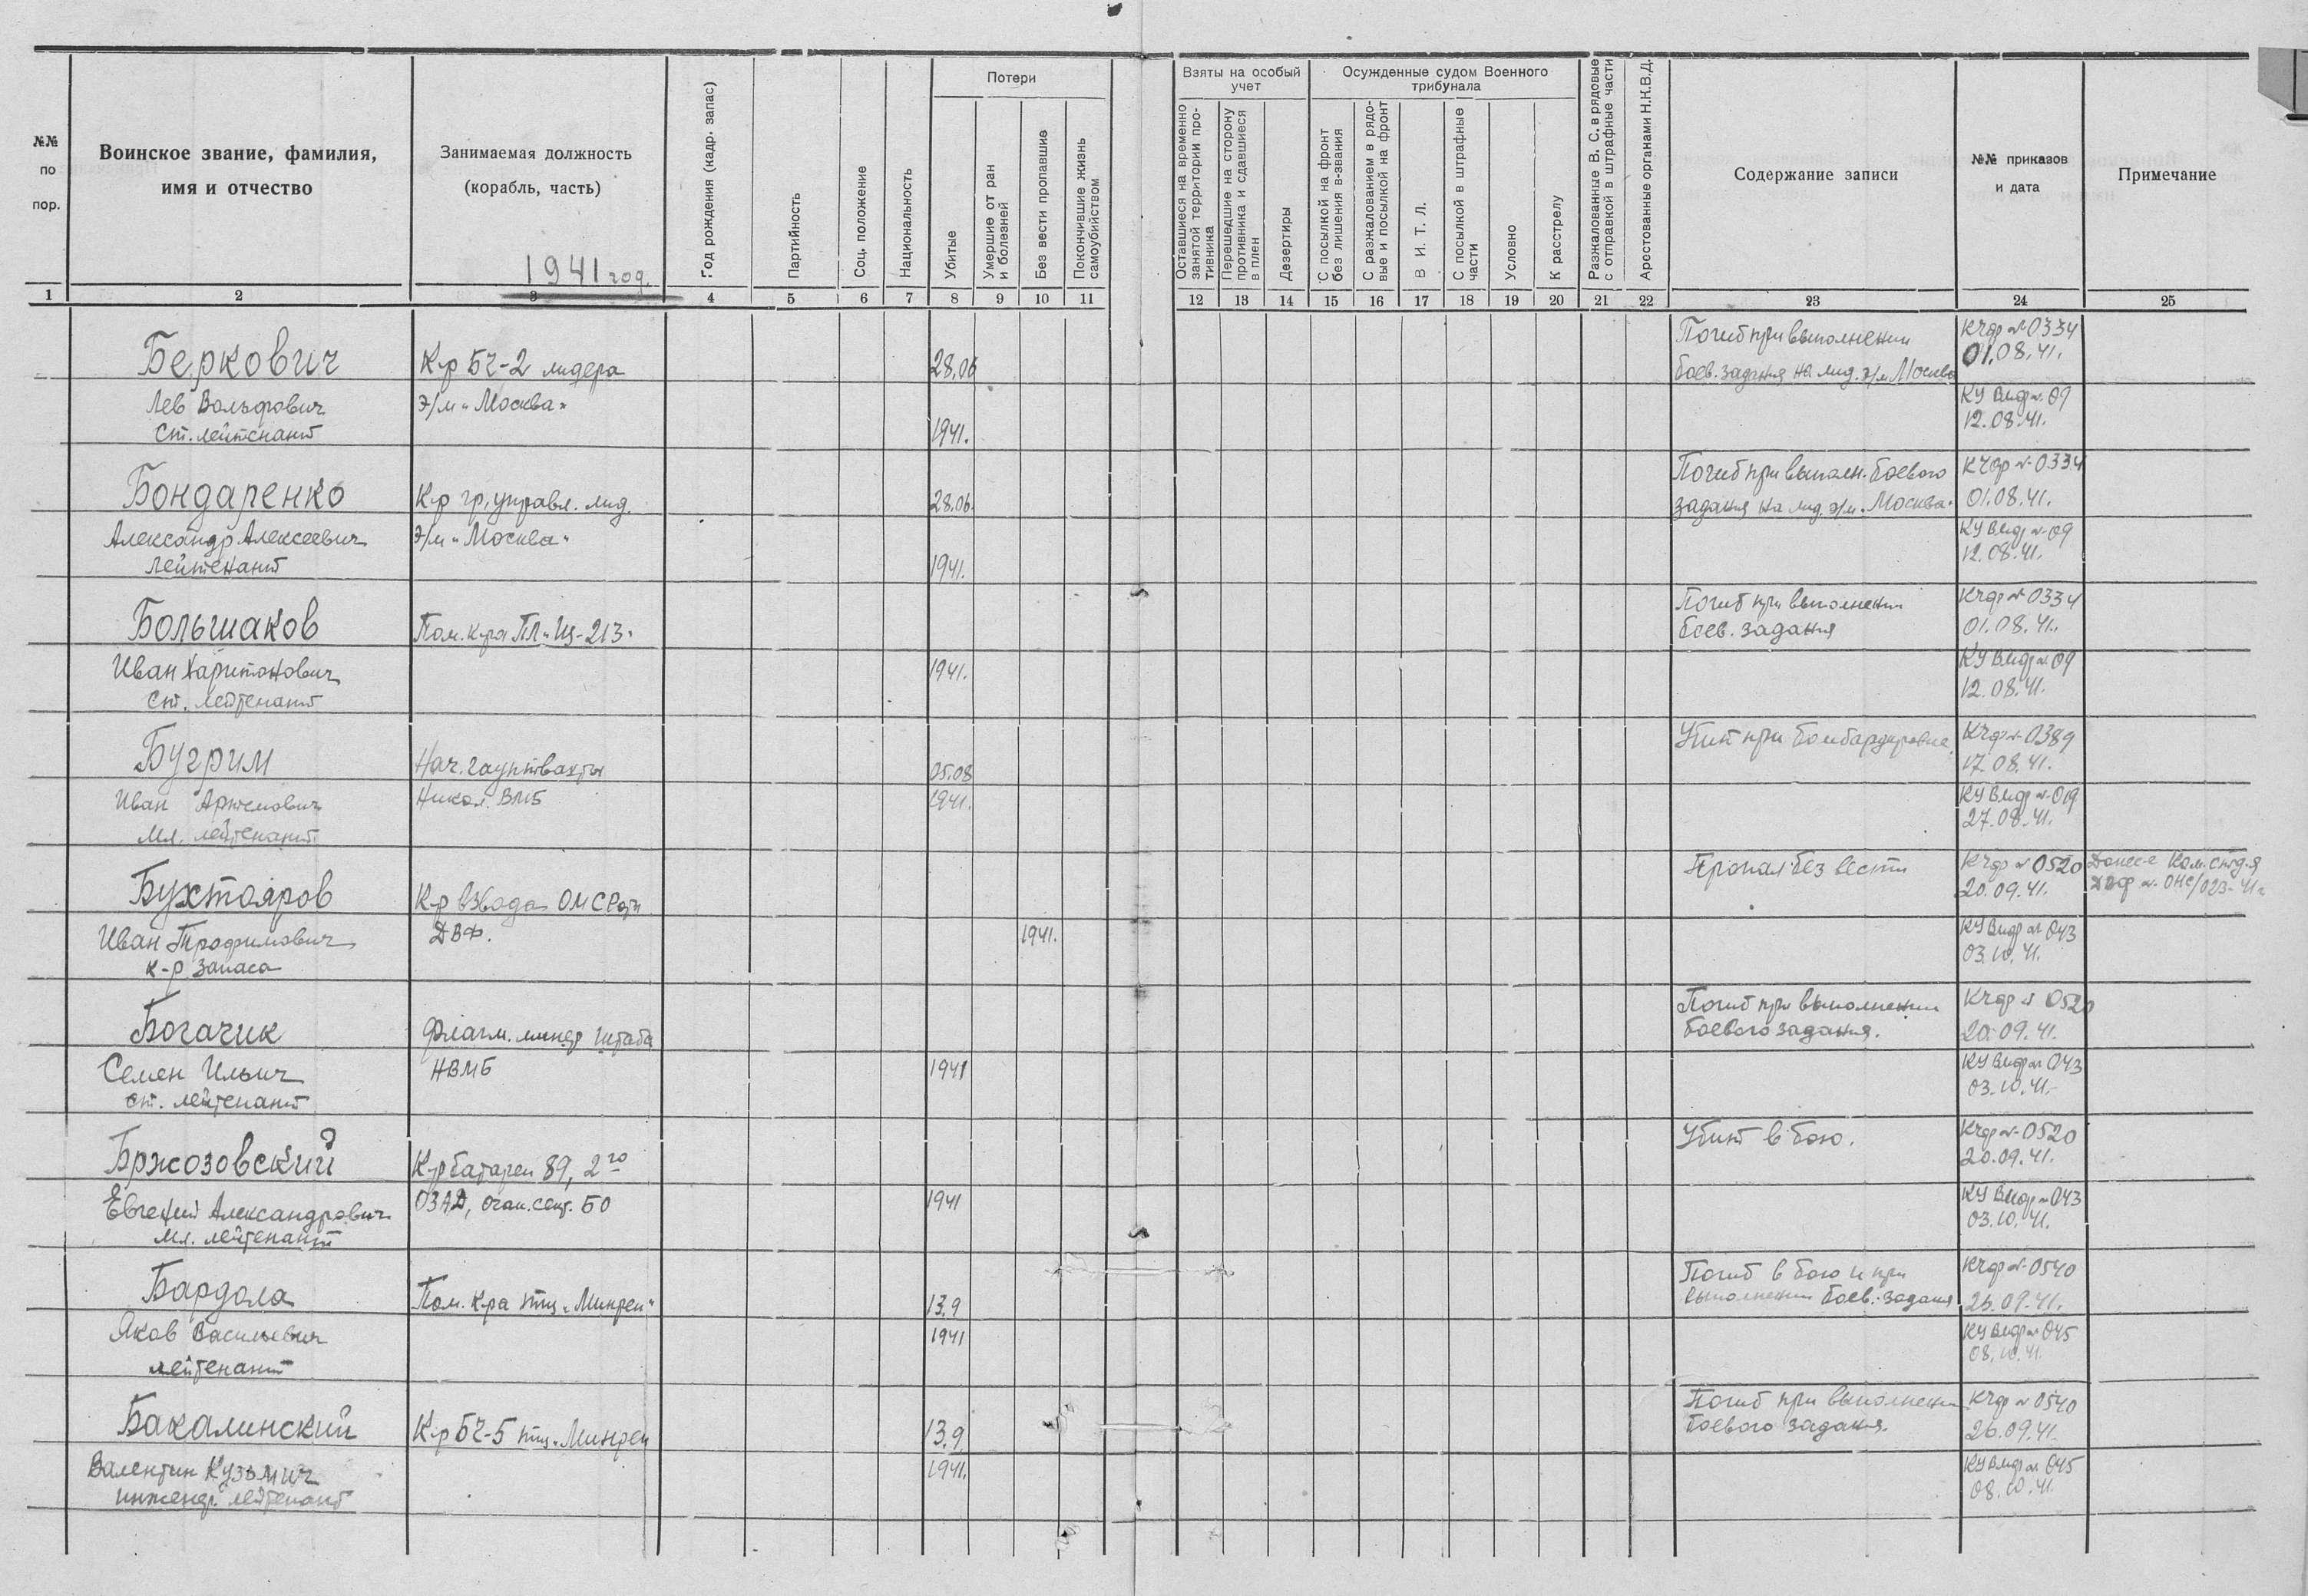 №№ по пор.
Воинское звание, фамилия, имя и отчество
Занимаемая должность (корабль, часть)
1941 год.
Год рождения (кадр. запас)
Партийность
Соц. положение
Национальность
Потери
Убитые
Умершие от ран и болезней
Без вести пропавшие
Покончившие жизнь самоубийством
Взяты на особый учет
Оставшиеся на временно занятой территории противника
Перешедшие на сторону противника и сдавшиеся в плен
Дезертиры
Осужденные судом Военного трибунала
С посылкой на фронт без лишения в-звания
С разжалованием в рядовые и посылкой на фронт
В И. Т. Л.
С посылкой в штрафные части
Условно
К расстрелу
Разжалованные В. С. в рядовые с отправкой в штрафные части
Арестованные органами Н.К.В.Д.
Содержание записи
№№ приказов и дата
Примечание
1 2 3 4 5 6 7 8 9 10 11 12 13 14 15 16 17 18 19 20 21 22 23 24 25
Беркович
Лев Вольфович
Ст. лейтенант
К-р БЧ-2 лидера
э/м "Москва"
28.06
1941.
Погиб при выполнении
боев. задания на лид. э/м Москва
КЧф № 0334
01.08.41.
КУ Вмф № 09
12.08.41.
Бондаренко
Александр Алексеевич
Лейтенант
К-р гр. управл. лид.
э/м "Москва"
28.06.
1941.
Погиб при выполн. боевого
задания на лид. э/м "Москва"
КЧф № 0334
01.08.41.
КУ Вмф № 09
12.08.41.
Большаков
Иван Харитонович
Ст. лейтенант
Пом. к-ра ПЛ "Щ-213"
1941.
Погиб при выполнении
боев. задания
КЧф № 0334
01.08.41.
КУ Вмф № 09
12.08.41.
Бугрим
Иван Артемович
Мл. лейтенант
Нач. гауптвахты
Никол. ВМБ
05.08
1941.
Убит при бомбардировке.
КЧф № 0389
17.08.41.
КУ Вмф № 019
27.08.41.
Бухтояров
Иван Трофимович
к-р запаса
К-р взвода ОМСРоты
ДВФ.
1941.
Пропал без вести
КЧф № 0520
20.09.41.
КУ Вмф № 043
03.10.41.
Донес-е Ком.
Богачик
Семен Ильич
ст. лейтенант
Флагм. минер штаба
НВМБ
1941
Погиб при выполнении
боевого задания.
КЧф № 0520
20.09.41.
КУ Вмф № 043
03.10.41.
Бржозовский
Евгений Александрович
Мл. лейтенант
К-р батареи 89, 2го
ОЗАД, очак. сект. БО
1941
Убит в бою.
КЧф № 0520
20.09.41.
КУ Вмф № 043
03.10.41.
Бардола
Яков Васильевич
лейтенант
Пом. к-ра тщ "Минреп"
13.9
1941
Погиб в бою и при
выполнении боев. задания
КЧф № 0540
26.09.41.
КУ Вмф № 045
08.10.41.
Бакалинский
Валентин Кузьмич
инженер лейтенант
К-р БЧ-5 тщ "Минреп
13.9
1941.
Погиб при выполнении
боевого задания.
КЧф № 0540
26.09.41.
КУ Вмф № 045
08.10.41.